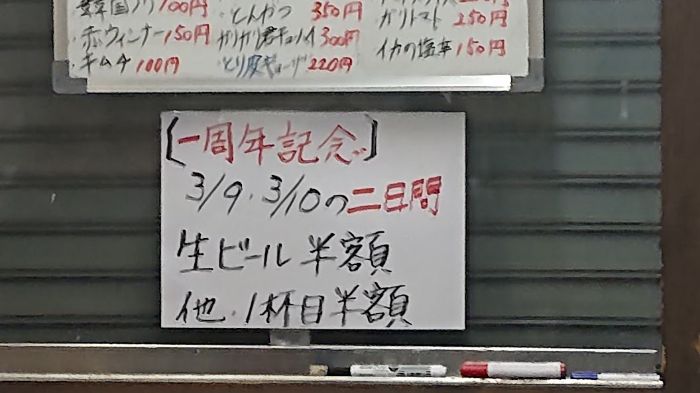 韓国ノリ 100円 とんかつ 350円 ガリトマト 250円
赤ウィンナー 150円 ガリガリ君チューハイ 300円 イカの塩辛 150円
キムチ 100円 とり皮ギョーザ 220円
【一周年記念】
3/9・3/10の二日間
生ビール 半額
他・1杯目半額